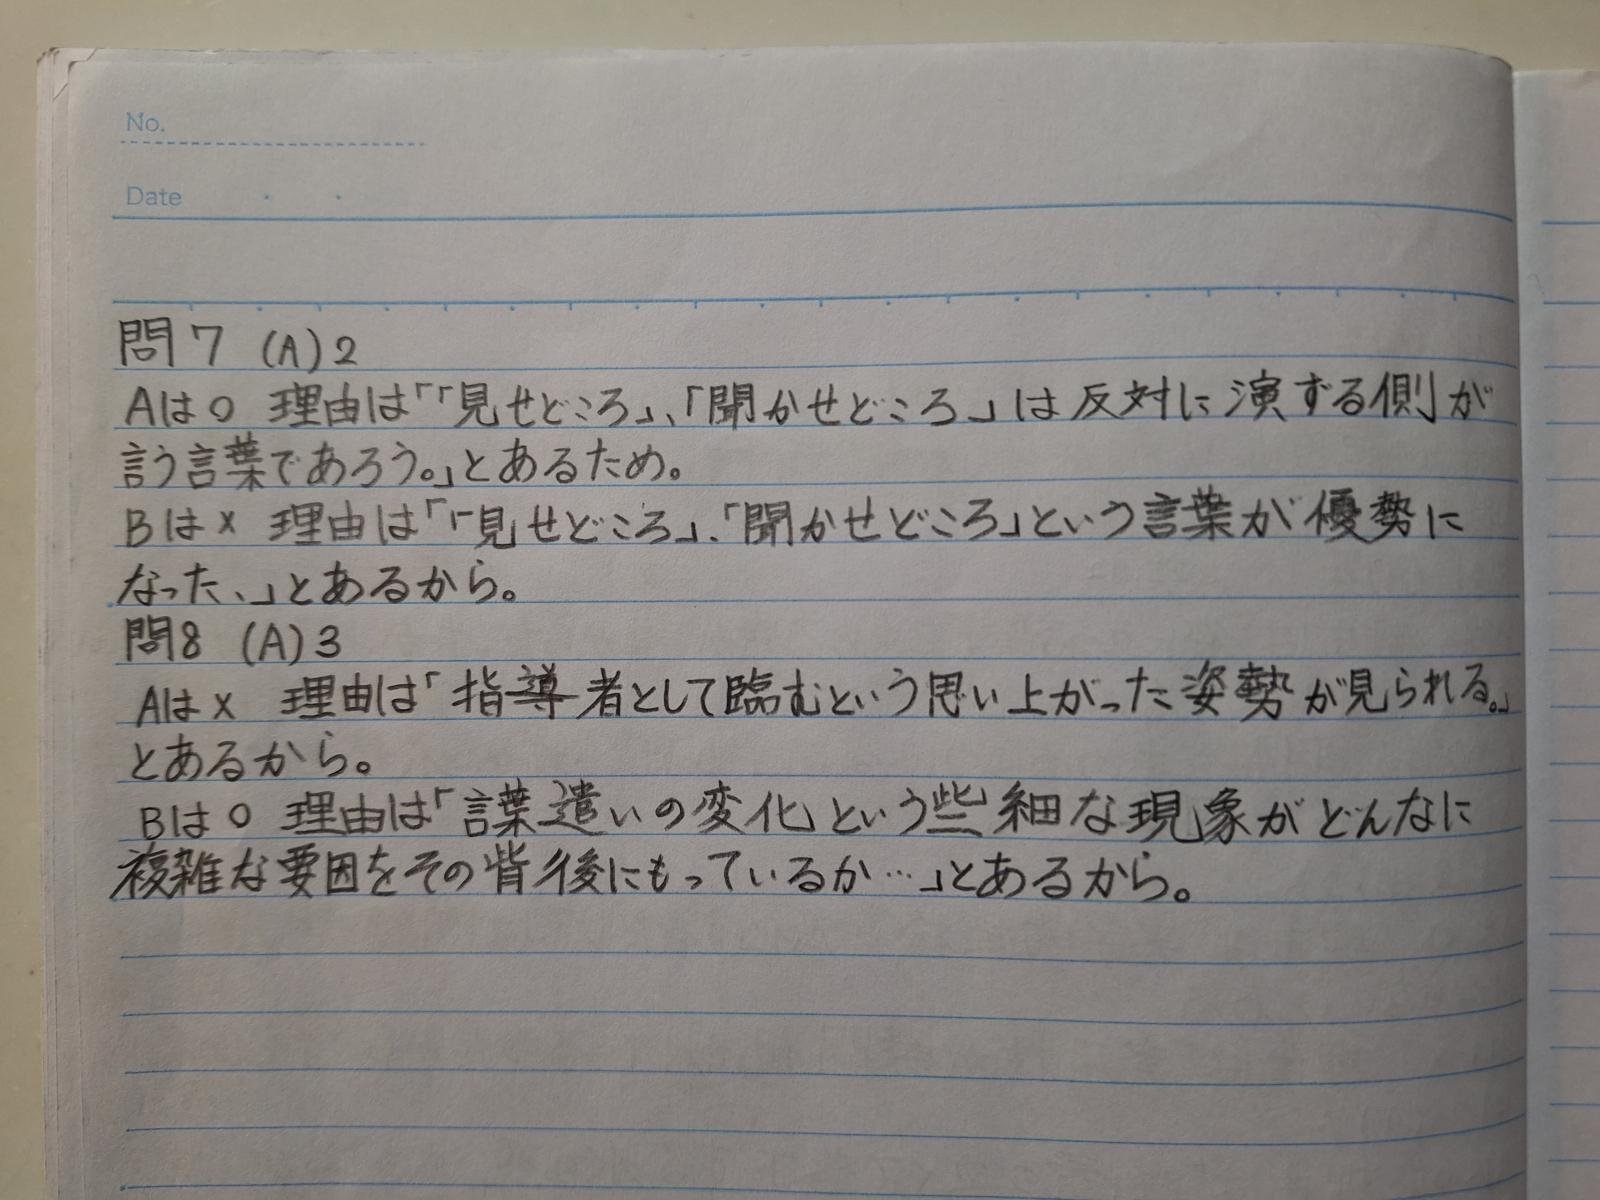 No.
Date
問7 (A)2
Aは○ 理由は「「見せどころ」、「聞かせどころ」は反対に演ずる側が
言う言葉であろう。」とあるため。
Bは× 理由は「「見せどころ」、「聞かせどころ」という言葉が優勢に
なった、」とあるから。
問8 (A)3
Aは× 理由は「指導者として臨むという思い上がった姿勢が見られる。」
とあるから。
Bは○ 理由は「言葉遣いの変化という些細な現象がどんなに
複雑な要因をその背後にもっているか…」とあるから。